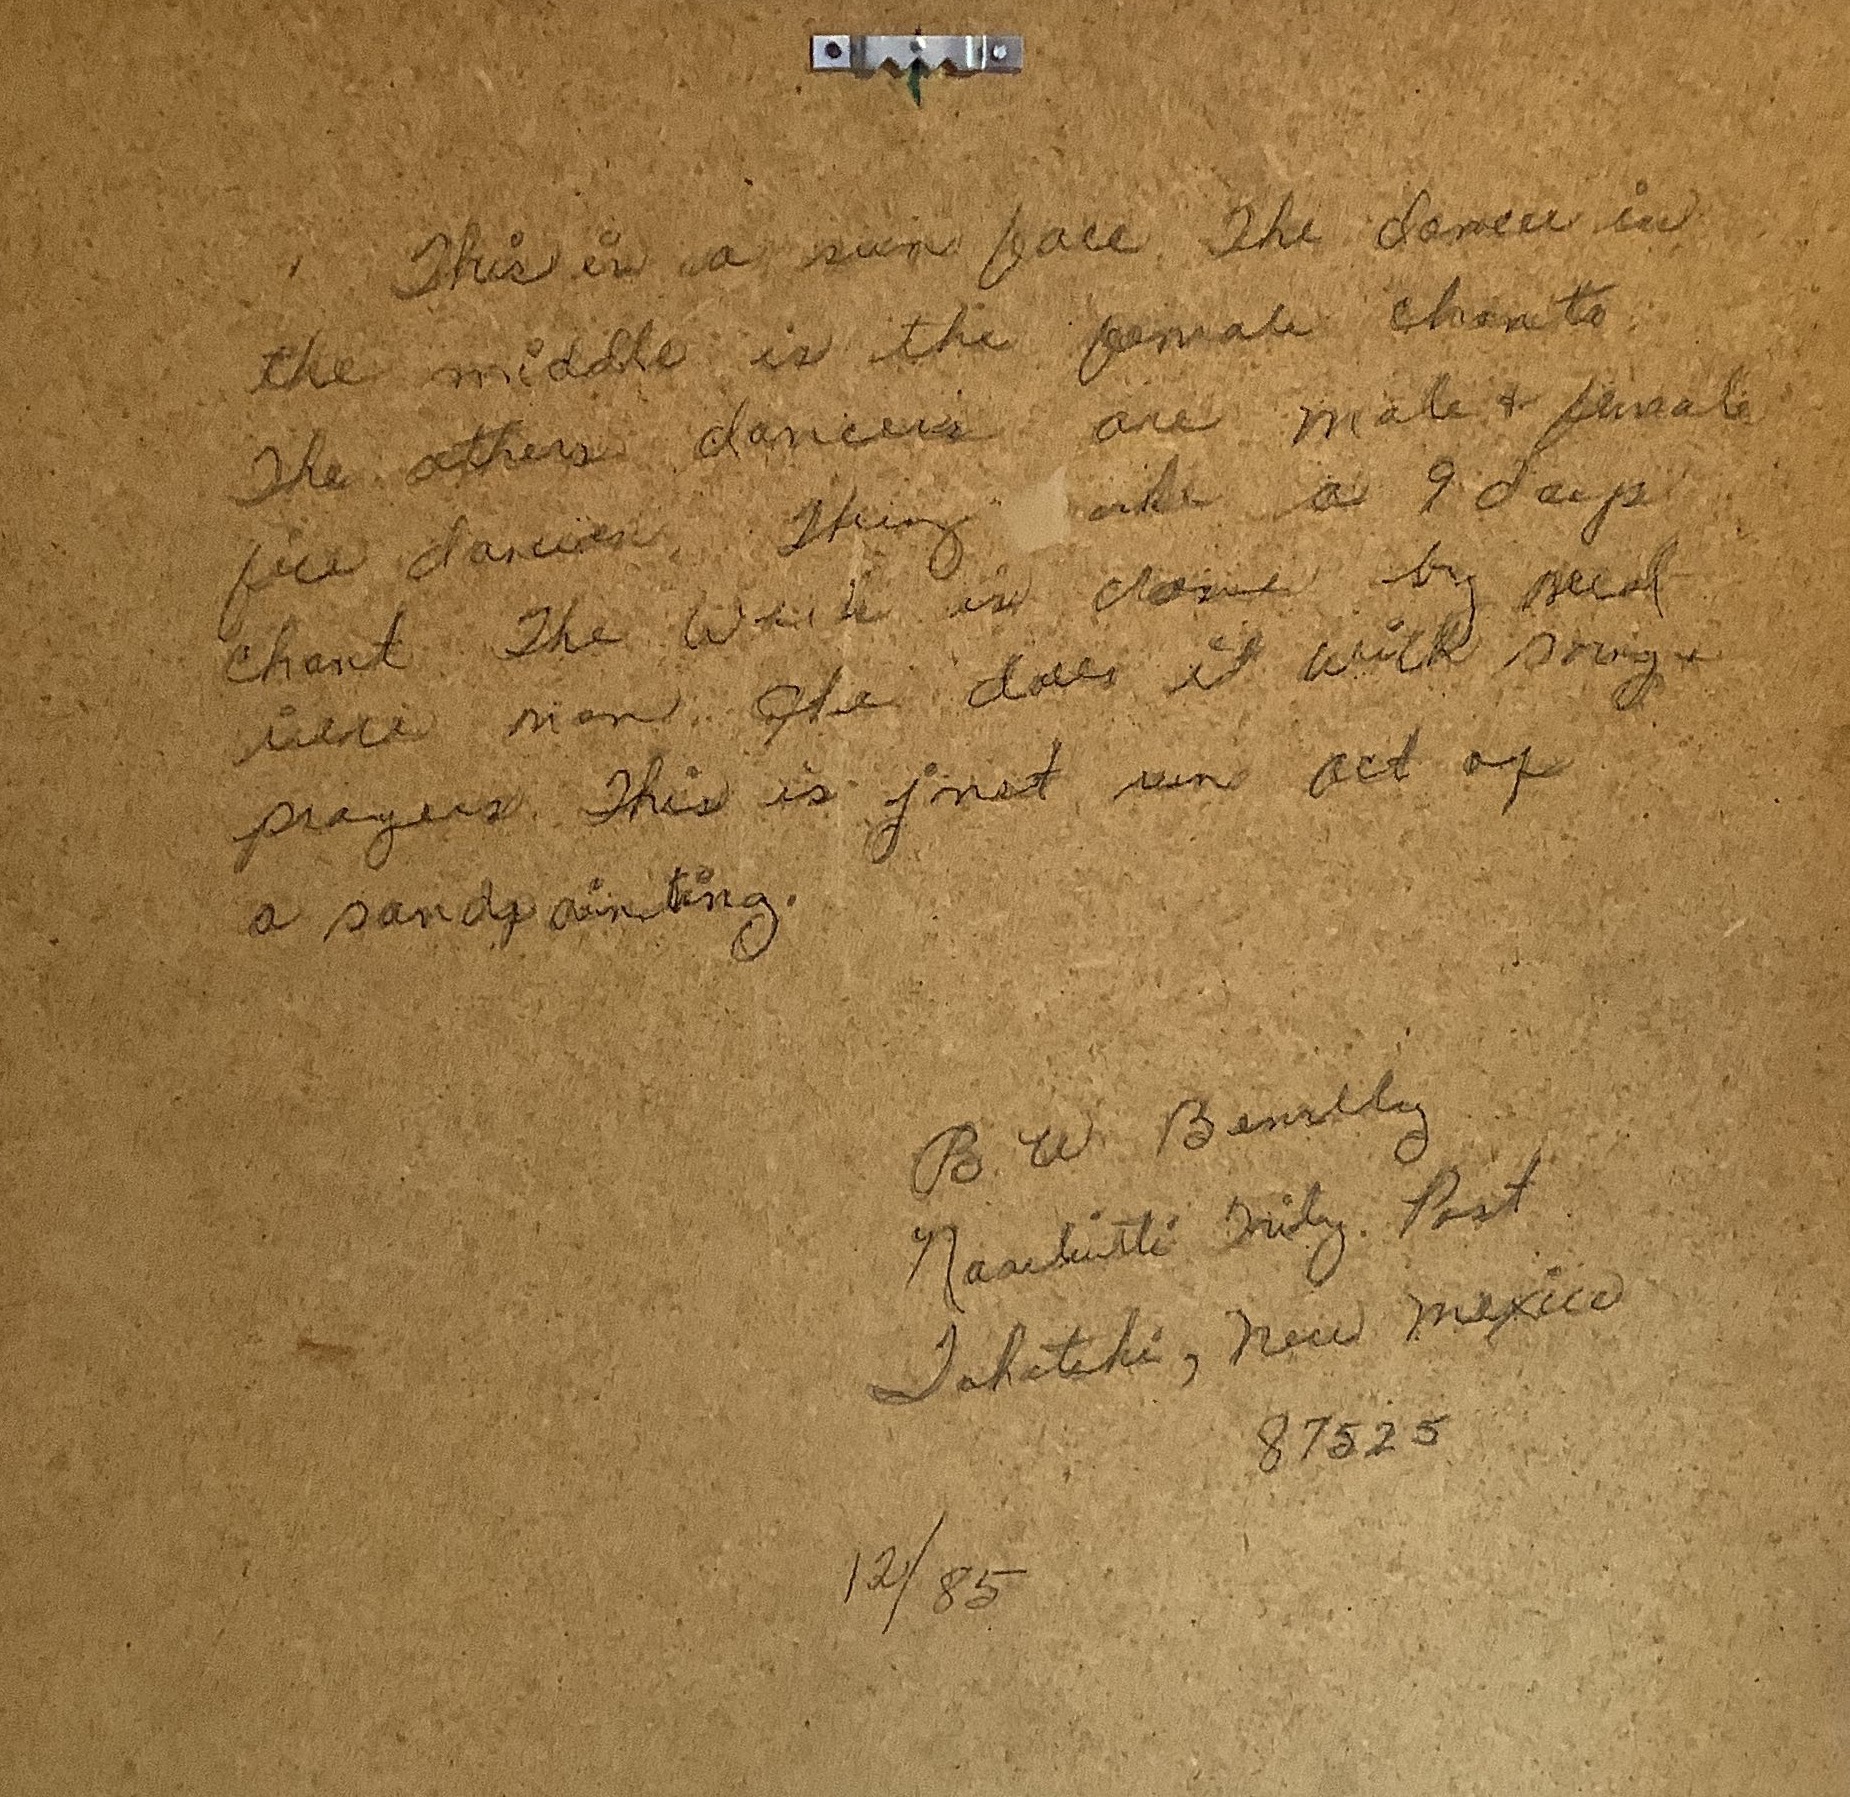 This is a sun face. The dancer in
the middle is the female chants.
The others dancers are male & female
fire dancers. They a 9 days
chant The Work is done by med
icene man. He does it with songs
prayers. This is just un act of
a sandpainting.
B. W Benally
Naschitti Trdg. Post
Tohatchi, New Mexico
87325
12/85